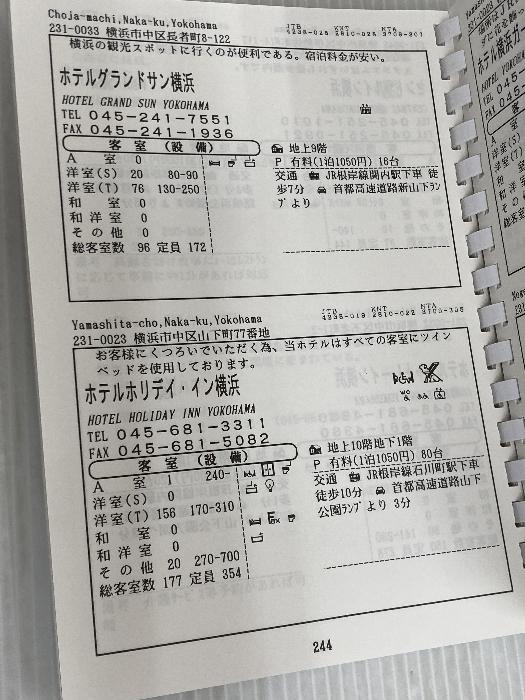 Choja-machi,Naka-ku,Yokohama
JTB KNT NTA
231-0033 横浜市中区長者町8-122
横浜の観光スポットに行くのが便利である。宿泊料金が安い。
ホテルグランドサン横浜
HOTEL GRAND SUN YOKOHAMA
TEL 045-241-7551
FAX 045-241-1936
客 室 (設 備)
A 室 0
洋室(S) 20 80-90
洋室(T) 76 130-250
和 室 0
和洋室 0
その他 0
総客室数 96 定員 172
地上9階
P 有料(1泊1050円) 16台
交通 JR根岸線関内駅下車 徒
歩7分 首都高速道路新山下ラン
プより
Yamashita-cho,Naka-ku,Yokohama
JTB KNT NTA
231-0023 横浜市中区山下町77番地
お客様にくつろいでいただく為、当ホテルはすべての客室にツイン
ベッドを使用しております。
ホテルホリデイ・イン横浜
HOTEL HOLIDAY INN YOKOHAMA
TEL 045-681-3311
FAX 045-681-5082
客 室 (設 備)
A 室 1 240-
洋室(S) 0
洋室(T) 156 170-310
和 室 0
和洋室 0
その他 20 270-700
総客室数 177 定員 354
地上10階地下1階
P 有料(1泊1050円) 80台
交通 JR根岸線石川町駅下車
徒歩10分 首都高速道路山下
公園ランプより 3分
244